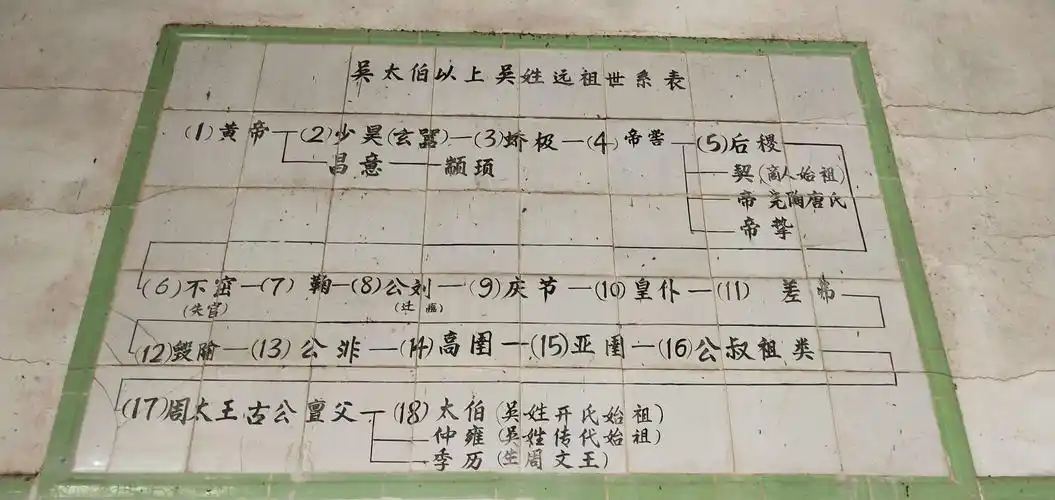 吴太伯以上吴姓远祖世系表
(1)黄帝 (2)少昊(玄嚣)—(3)蛴极—(4)帝喾 (5)后稷
昌意 颛顼 契(商人始祖)
帝尧陶唐氏
帝挚
(6)不窋—(7)鞠—(8)公刘—(9)庆节—(10)皇仆—(11)差弗
(失官) (迁豳)
(12)毁隃—(13)公非—(14)高圉—(15)亚圉—(16)公叔祖类
(17)周太王古公亶父 (18)太伯(吴姓开氏始祖)
仲雍(吴姓传代始祖)
季历(生周文王)